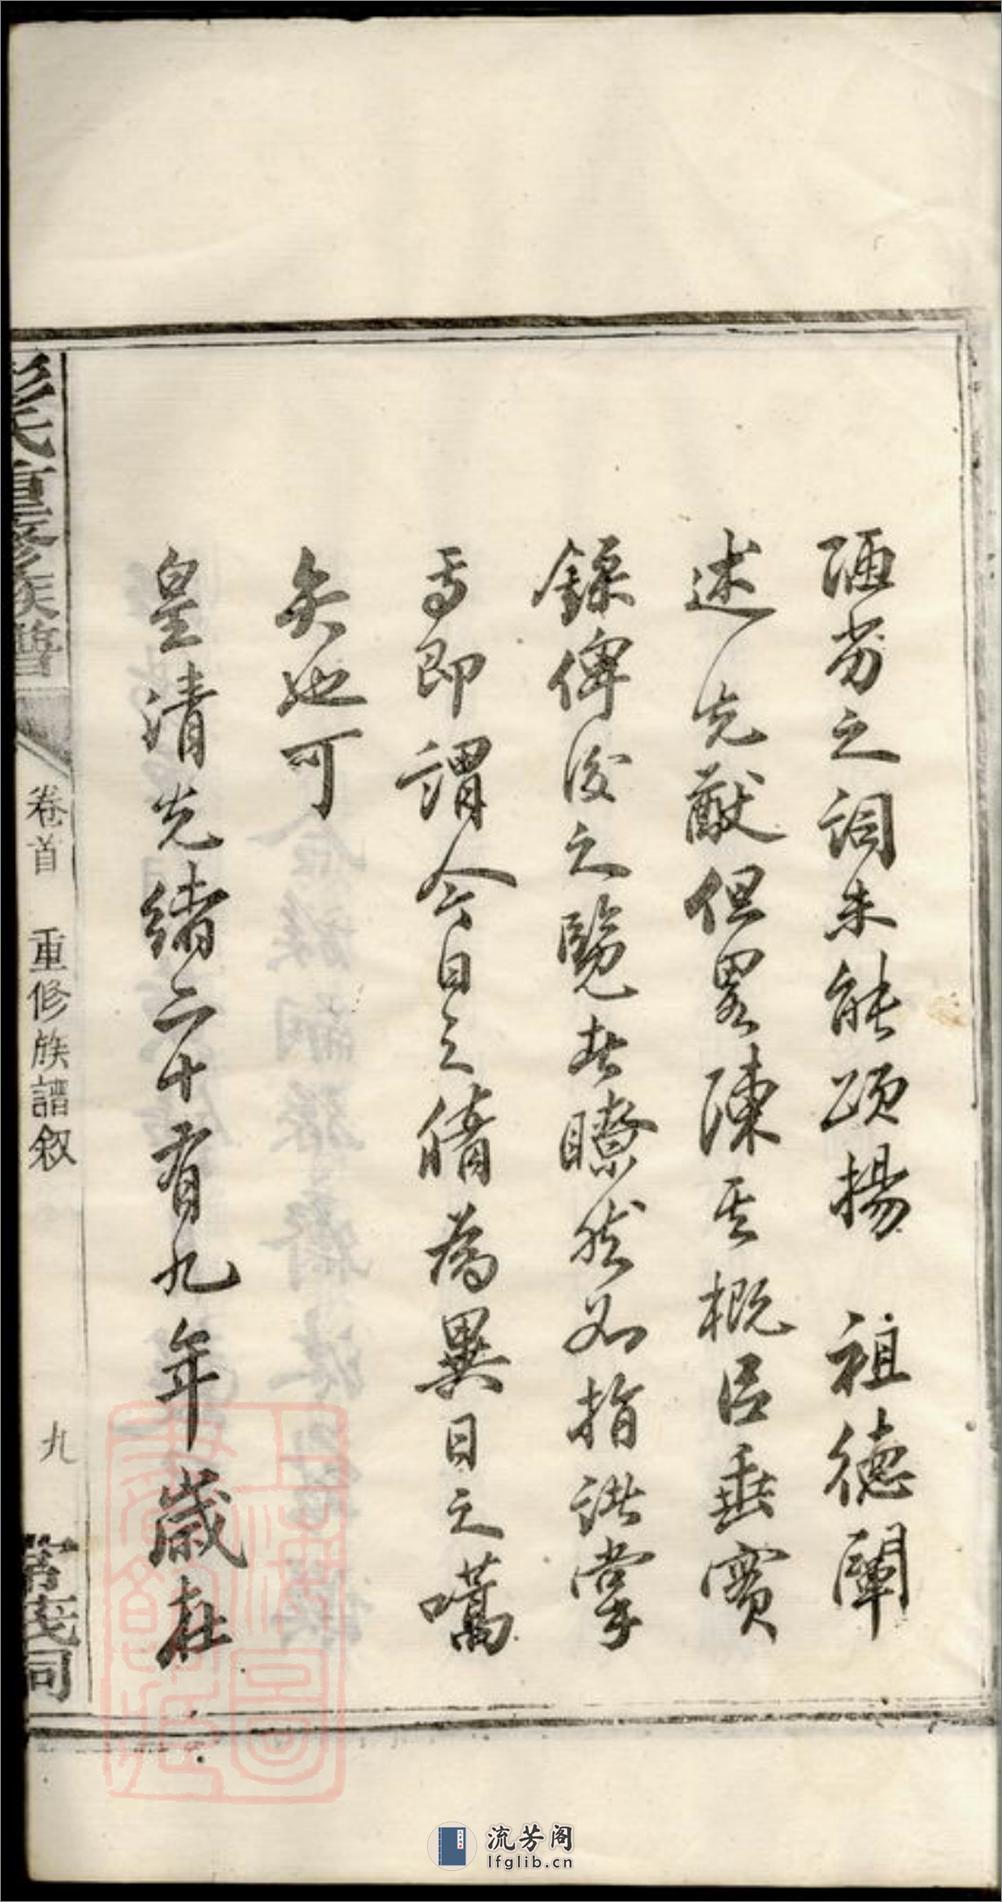 陋劣之詞未能頌揚 祖德闡
述先猷但畧陳其概以垂實
錄俾後之覽者瞭然如指諸掌
焉即謂今日之脩為異日之嚆
矢也可
皇清光緒二十有九年歲在
彭氏重修族譜
卷首 重修族譜叙
九
流芳阁
lfglib.cn